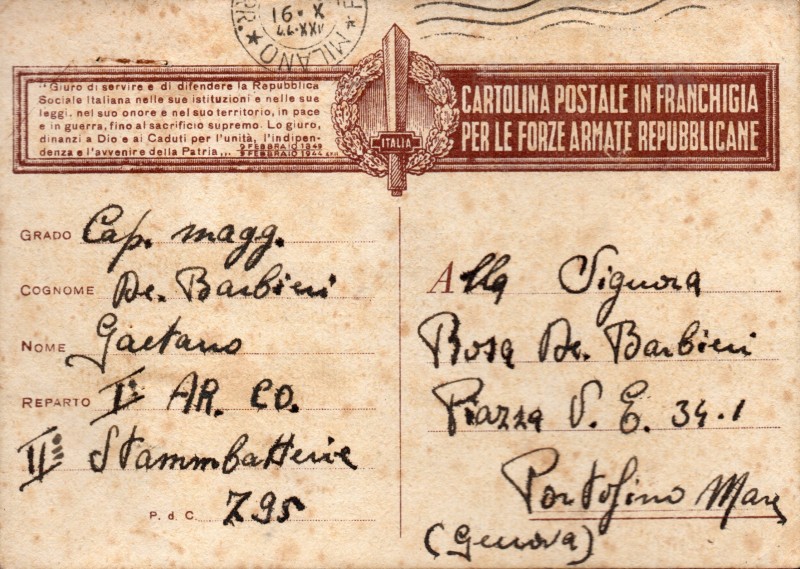 MILANO
16 · X
44-XXII
"Giuro di servire e di difendere la Repubblica
Sociale Italiana nelle sue istituzioni e nelle sue
leggi, nel suo onore e nel suo territorio, in pace
e in guerra, fino al sacrificio supremo. Lo giuro,
dinanzi a Dio e ai Caduti per l'unità, l'indipen-
denza e l'avvenire della Patria...
9 FEBBRAIO 1849
9 FEBBRAIO 1944
ITALIA
CARTOLINA POSTALE IN FRANCHIGIA
PER LE FORZE ARMATE REPUBBLICANE
GRADO Cap. magg.
COGNOME De. Barbieri
NOME Gaetano
REPARTO I° AR. CO.
Stammbatterie
P. d. C. 795
Alla Signora
Rosa De. Barbieri
Piazza V. E. 34-1
Portofino Mare
(Genova)